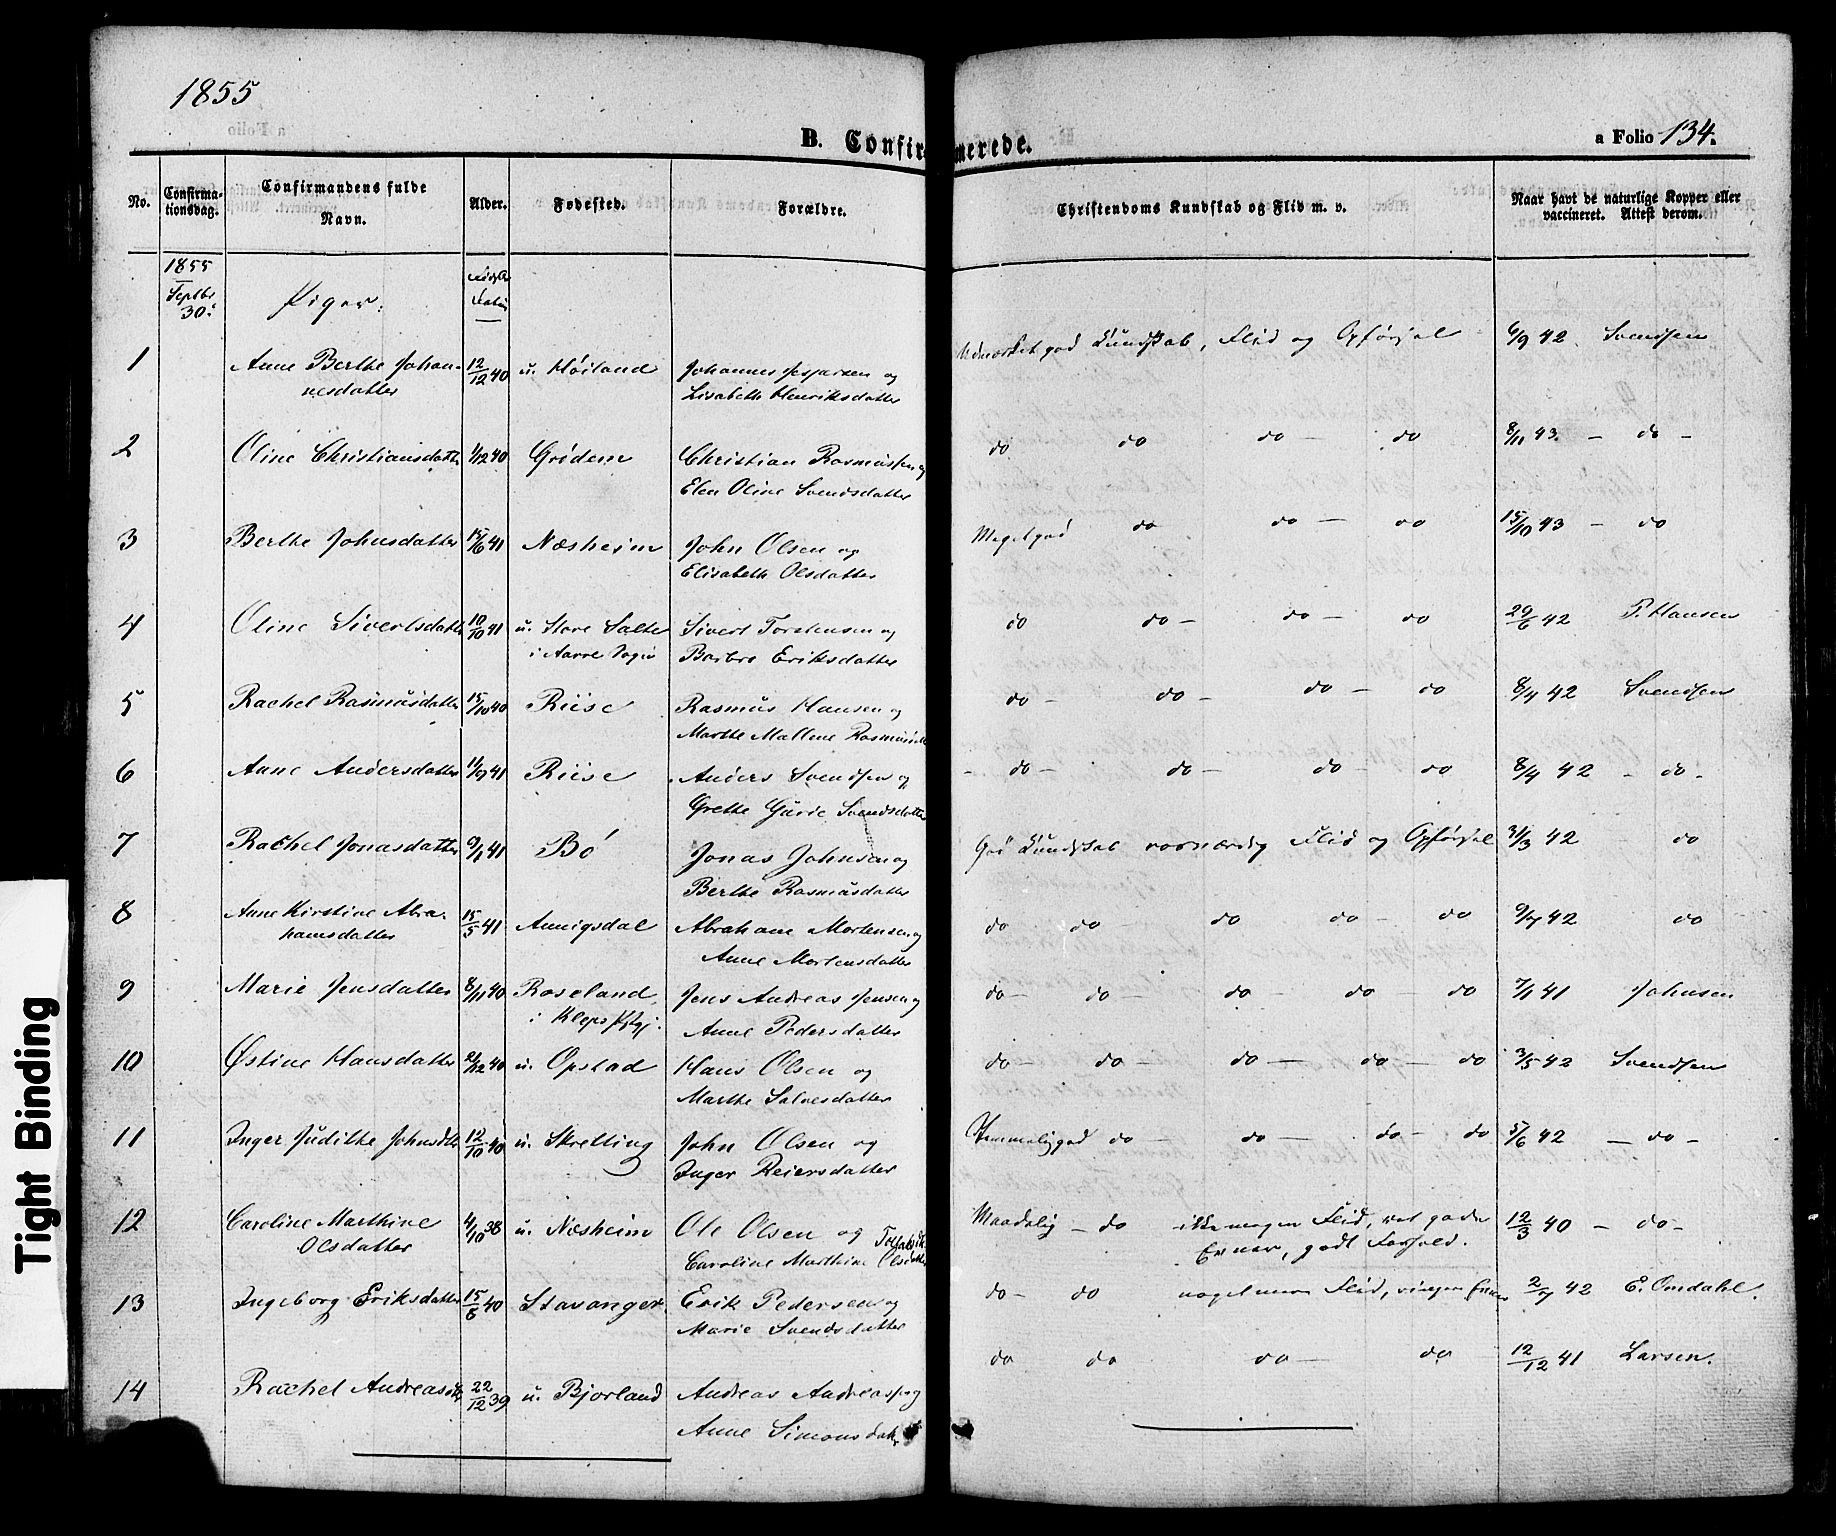 1855
B. Confirmerede.
a Folio 134.
No.
Confirma-
tionsdag.
Confirmandens fulde
Navn.
Alder.
Fødested.
Forældre.
Christendoms Kundskab og Flid m. v.
Naar havt de naturlige Kopper eller
vaccineret. Attest derom.
1855
Septbr
30.
Piger.
1 Anne Berthe Johan- 12/12 40 u. Høiland Johannes og Kundskab, Flid og Opførsel 6/9 42. Svendsen
nesdatter Lisabeth Henriksdatter
2 Oline Christiansdatter 1/12 40 Grødem Christian Rasmussen og do do do — do 8/11 43. — do —
Elen Olive Svendsdatter
3 Berthe Johnsdatter 41 Næsheim John Olsen og Meget god do do — do 15/10 43 — do
Elisabeth Olsdatter
4 Oline Sivertsdatter 10/10 41 u. Store Salte Sivert Torstensen og do do — do — do 29/6 42 T. Hansen
i Aarre Sogn Barbro Eriksdatter
5 Rachel Rasmusdatter 15/10 40 Riise Rasmus Hansen og do — do — do — do 8/4 42 Svendsen
Marthe Mallene
6 Anne Andersdatter 11/9 41 Riise Anders Svendsen og — do — do — do — do 8/4 42 — do —
Grethe Gurie Svendsdatter
7 Rachel Jonasdatter 9/1 41 Bø Jonas Johnsen og God Kundskab rosværdig Flid og Opførsel 31/3 42 do
Berthe Rasmusdatter
8 Anne Kirstine Abra- 15/5 41 Annigsdal Abraham Mortensen og do do do do — do 9/7 42 do
hamsdatter Anne Mortensdatter
9 Marie Jensdatter 8/11 40 Roseland Jens Andreas Jensen og do — do — do — do — do 7/1 41 Johnsen
i Kleps Anne Pedersdatter
10 Østine Hansdatter 2/12 40 u. Opstad Hans Olsen og do — do — do — do — do 3/5 42 Svendsen
Marthe Salvesdatter
11 Inger Judithe Johnsdtr 12/10 40 u. Skretting John Olsen og Temmelig god do — do — do — do 5/6 42 — do —
Inger Reiersdatter
12 Caroline Marthine 4/10 38 u. Næsheim Ole Olsen og Maadelig — do ikke megen Flid, ret gode 12/3 40 — do —
Olsdatter Caroline Marthine Olsdatter Evner, godt Forhold.
13 Ingeborg Eriksdatter 15/8 40 Stavanger Erik Pedersen og do — do noget mere Flid, ringe Evner 2/7 42 E. Omdahl.
Marie Svendsdatter
14 Rachel Andreasdtr 22/12 39 u. Bjorland Andreas og do do do — do 12/12 41 Larsen.
Anne Simonsdatr
Tight Binding